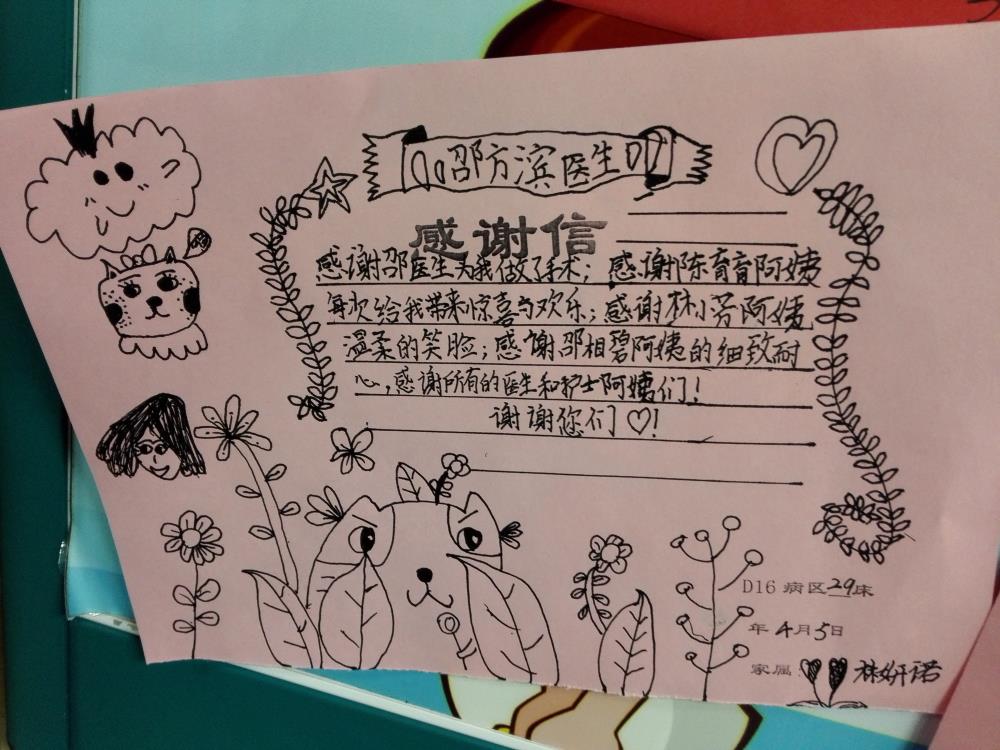 邵方滨医生
感谢信
感谢邵医生为我做了手术；感谢陈育育阿姨
每次给我带来惊喜与欢乐；感谢林小芳阿姨
温柔的笑脸；感谢邵相碧阿姨的细致耐
心，感谢所有的医生和护士阿姨们！
谢谢您们♡！
D16 病区29床
年4月5日
家属：林妍诺